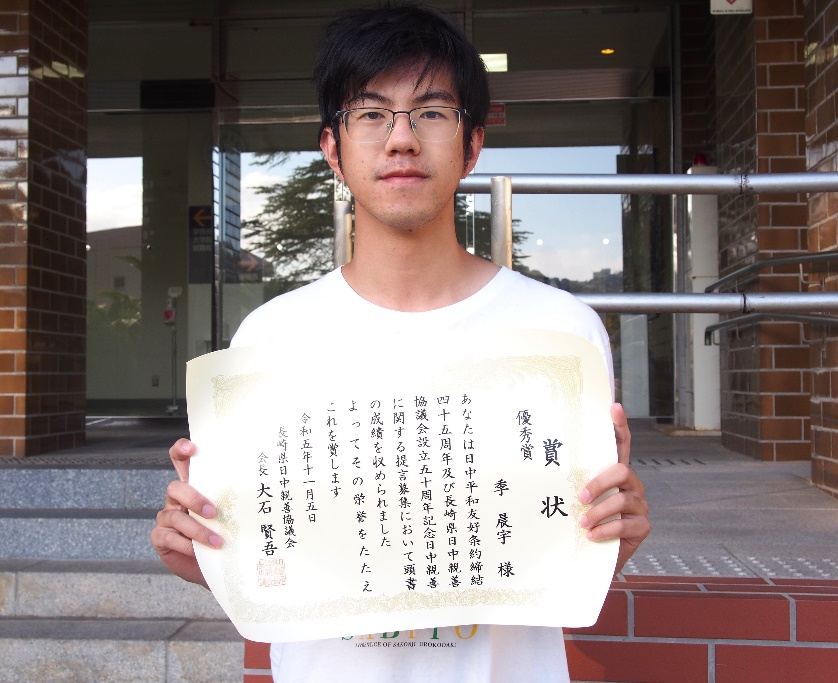 賞状
優秀賞
季 晨宇 様
あなたは日中平和友好条約締結
四十五周年及び長崎県日中親善
協議会設立五十周年記念日中親善
に関する提言募集において頭書
の成績を収められました
よってその栄誉をたたえ
これを賞します
令和五年十一月五日
長崎県日中親善協議会
会長 大石 賢吾
SABITO